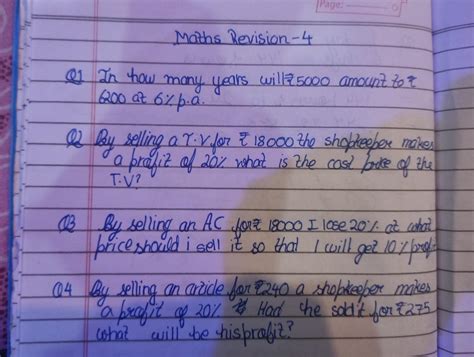 Page:
Maths Revision-4
Q1 In how many years will ₹5000 amount to ₹
6200 at 6% p.a.
Q2 By selling a T.V. for ₹ 18000 the shopkeeper makes
a profit of 20% what is the cost price of the
T.V?
Q3 By selling an AC for ₹ 18000 I lose 20% at what
price should i sell it so that I will get 10% profit
Q4 By selling an article for ₹240 a shopkeeper makes
a profit of 20% Had he sold it for ₹275
what will be his profit?